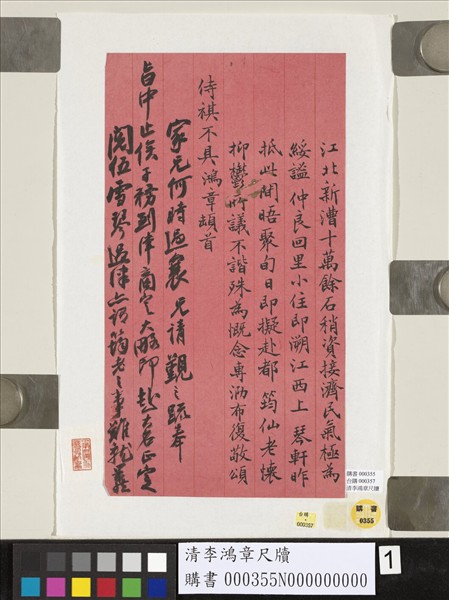 江北新漕十萬餘石稍資接濟民氣極為
綏謐 仲良回里小住即溯江西上 琴軒昨
抵此間晤聚旬日即擬赴都 筠仙老懷
抑鬱所議不諧殊為慨念專泐布復敬頌
侍祺不具鴻章頓首
家兄何時返襄 兄請覲之疏奉
旨中止俟子務到津商定大略即赴 正定
閱伍雪琴過津 筠老之事雖
購書 000355
台購 000357
清李鴻章尺牘
台購
000357
購書
0355
清李鴻章尺牘
購書 000355N000000000
1